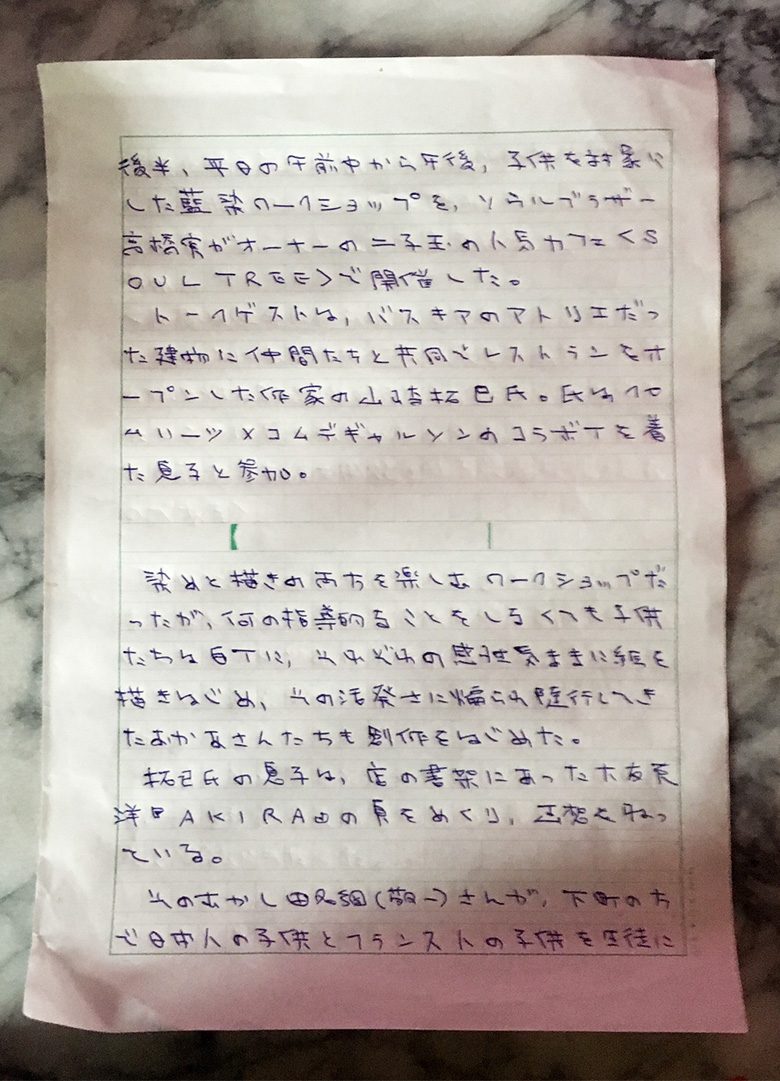 後半、平日の午前中から午後，子供を対象に
した藍染ワークショップを，ソウルブラザー
高橋実がオーナーの二子玉の人気カフェ＜S
OUL TREE＞で開催した。
トークゲストは，バスキアのアトリエだっ
た建物に仲間たちと共同でレストランをオ
ープンした作家の山崎拓巳氏。氏は
ムリーツ×コムデギャルソンのコラボTを着
た息子と参加。
染めと描きの両方を楽しむワークショップだ
ったが，何の指導的なことをしなくても子供
たちは白Tに，それぞれの感性気ままに絵を
描きはじめ，その活発さに煽られ随行してき
たおかあさんたちも創作をはじめた。
拓巳氏の息子は，店の書架にあった大友克
洋 AKIRA の頁をめくり，構想を ねっ
ている。
そのむかし田名網(敬一)さんが，下町の
で日本人の子供とフランス人の子供を生徒に